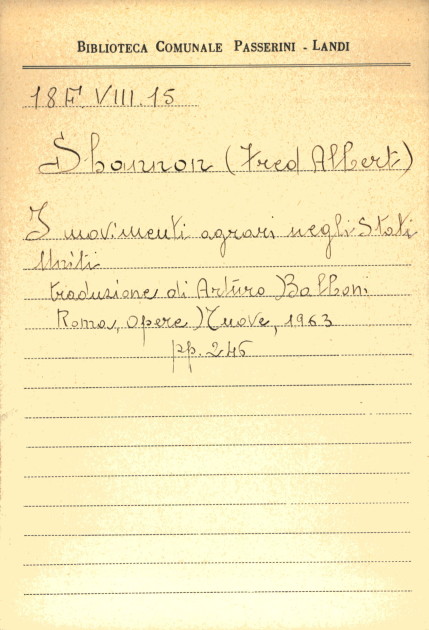 BIBLIOTECA COMUNALE PASSERINI - LANDI
18 F. VIII. 15
Shannon (Fred Albert)
I movimenti agrari negli Stati
Uniti
traduzione di Arturo Balboni
Roma, Opere Nuove, 1963
pp. 246